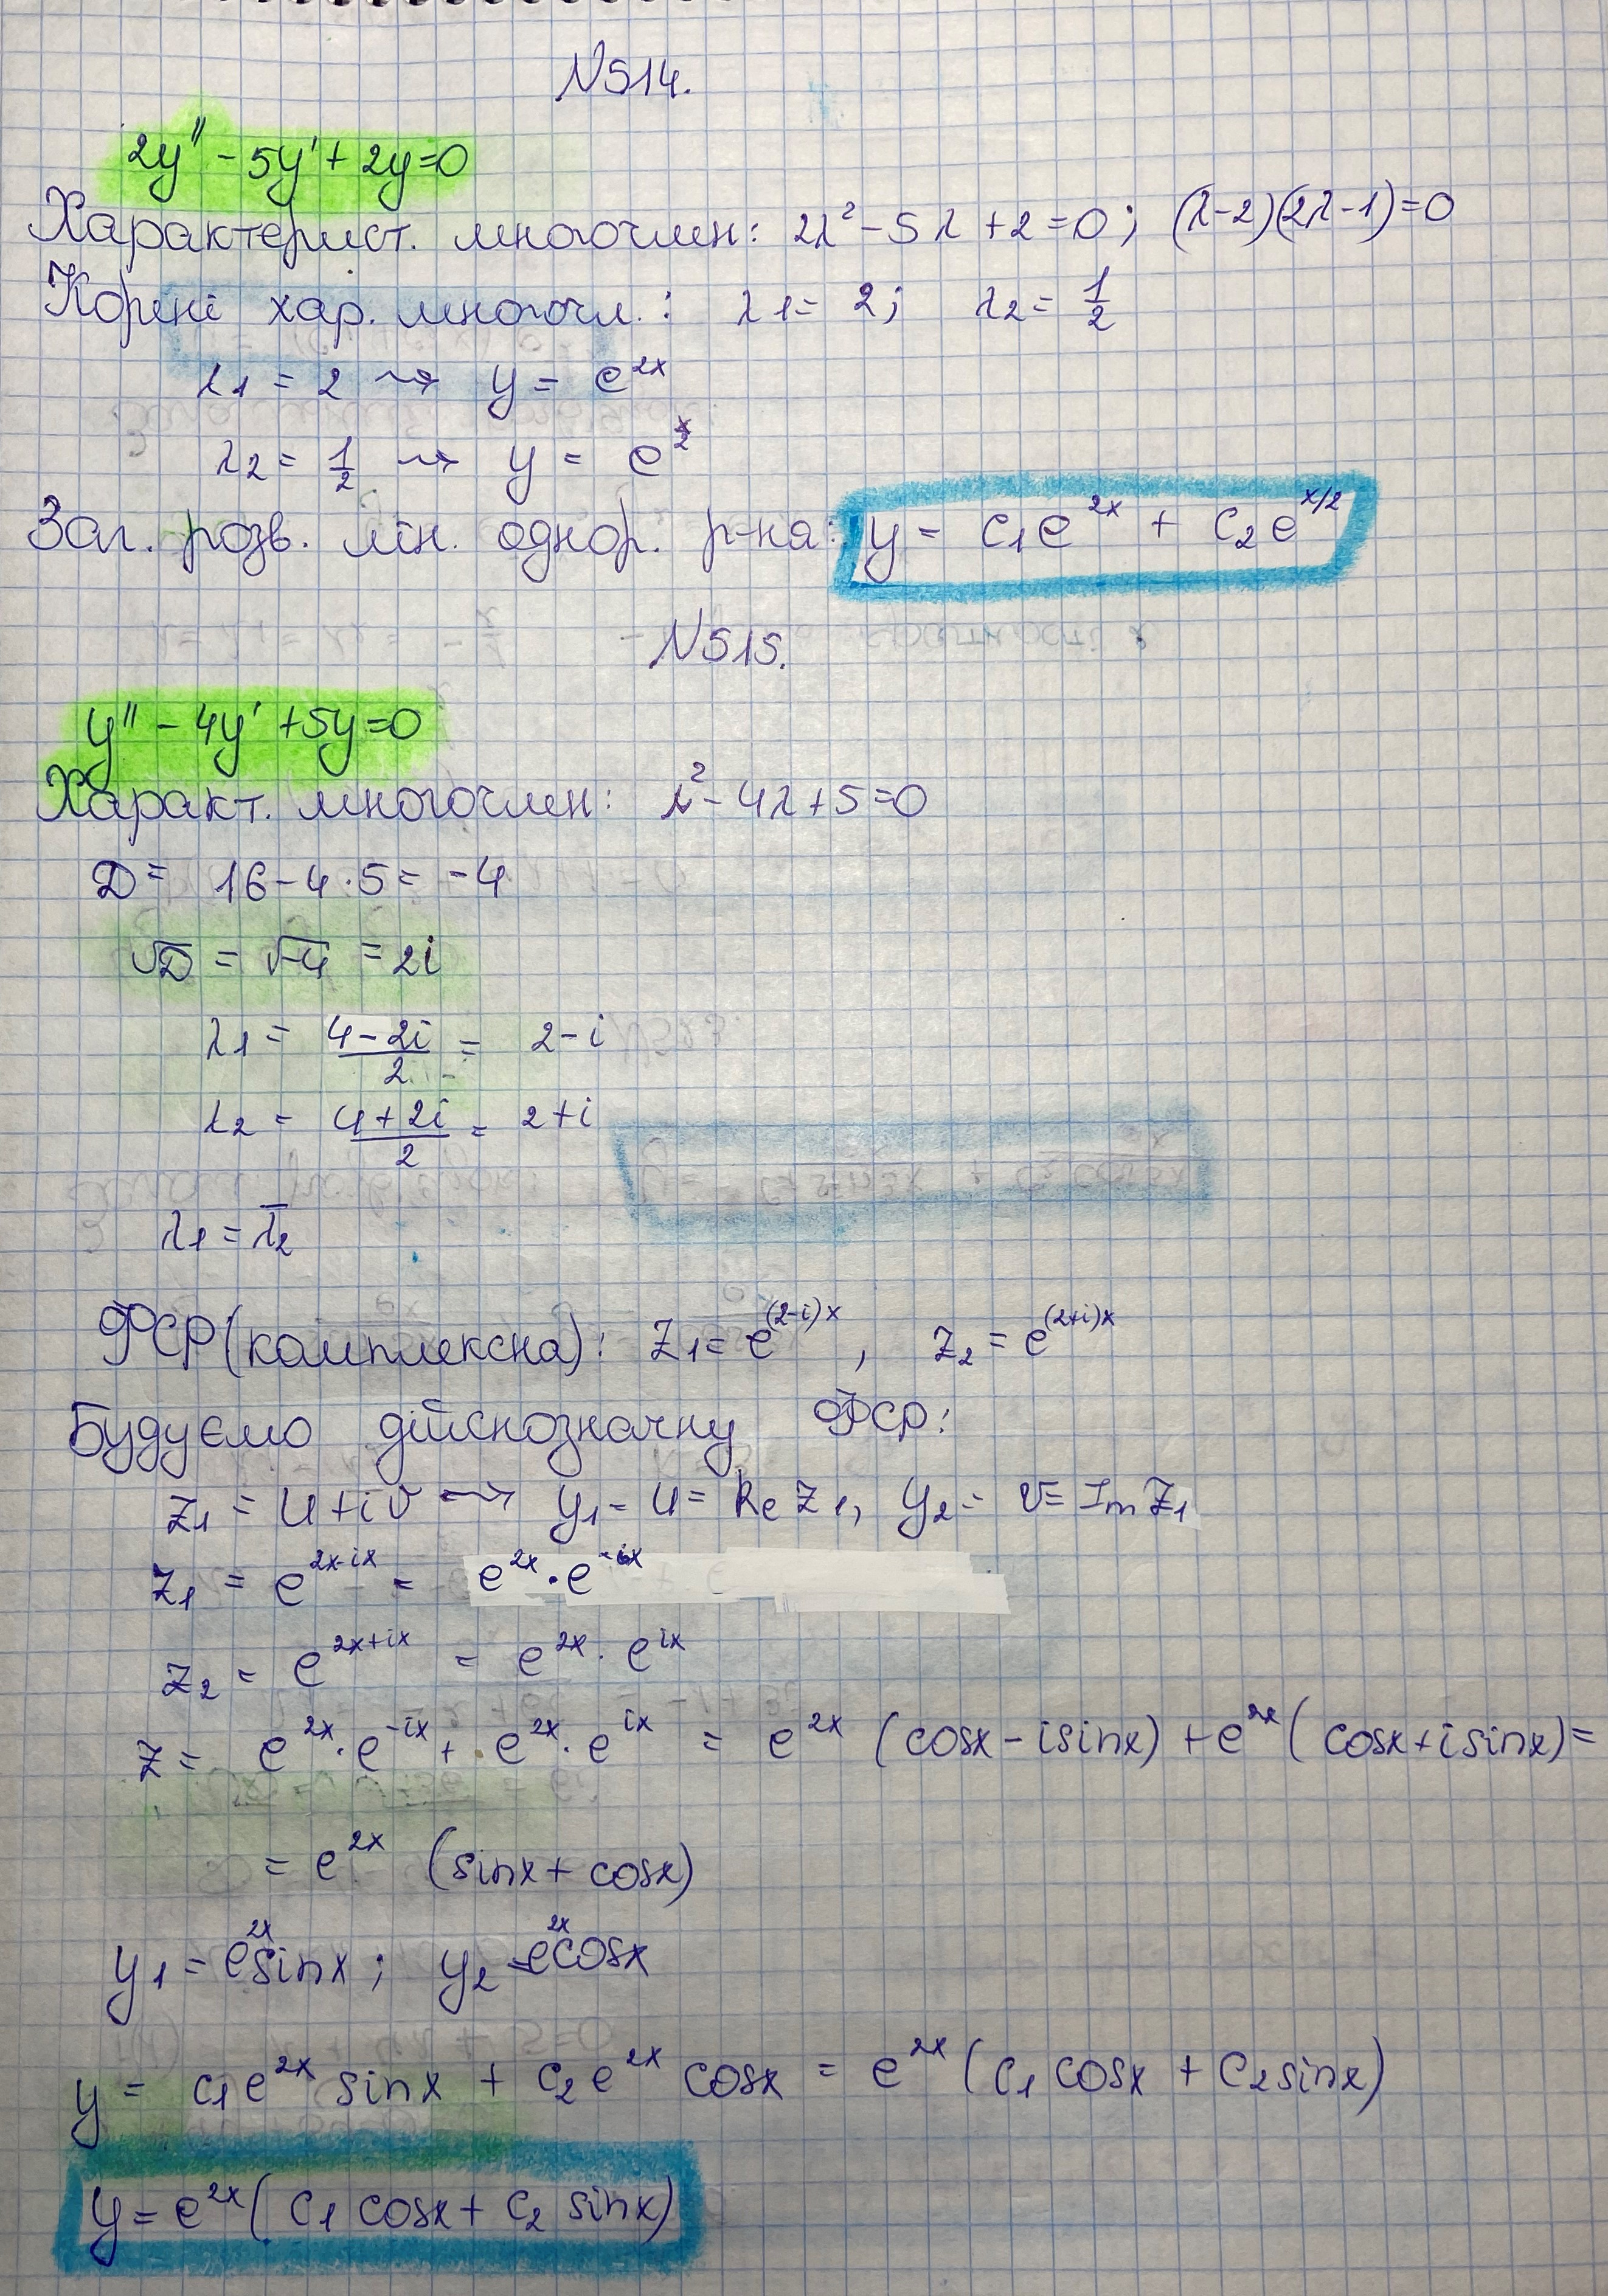 N514.
2y'' - 5y' + 2y=0
Характерист. многочлен: 2λ² - 5λ + 2 = 0; (λ-2)(2λ-1)=0
Корені хар. многочл.: λ1 = 2; λ2 = 1/2
λ1 = 2 ⇝ y = e^{2x}
λ2 = 1/2 ⇝ y = e^{x/2}
Заг. розв. лін. однор. р-ня: y = C1e^{2x} + C2e^{x/2}
N515.
y'' - 4y' + 5y=0
Характ. многочлен: λ² - 4λ + 5 = 0
D = 16 - 4·5 = -4
√D = √-4 = 2i
λ1 = (4-2i)/2 = 2-i
λ2 = (4+2i)/2 = 2+i
λ1 = λ̄2
ФСР(комплексна): z1 = e^{(2-i)x} , z2 = e^{(2+i)x}
Будуємо дійснозначну ФСР:
z1 = u+iv ⇝ y1 = u = Re z1, y2 = v = Im z1
z1 = e^{2x-ix} = e^{2x}·e^{-ix}
z2 = e^{2x+ix} = e^{2x}·e^{ix}
z = e^{2x}·e^{-ix} + e^{2x}·e^{ix} = e^{2x} (cosx - isinx) + e^{2x} (cosx + isinx) =
= e^{2x} (sinx + cosx)
y1 = e^{2x}sinx ; y2 = e^{2x}cosx
y = C1e^{2x} sinx + C2e^{2x} cosx = e^{2x} (C1 cosx + C2 sinx)
y = e^{2x} (C1 cosx + C2 sinx)